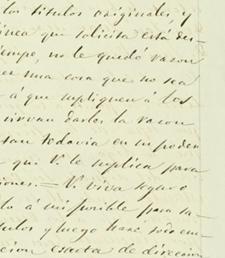 los titulos originales, y
linea que solicita está des-
iempo, no le quedó razon
er una cosa que no sea
á que supliquen á los
sirvan darles la razon
tan todavia en su poden
que V. le suplica para
iones. = V. viva seguro
lo á mi posible para sa-
tulos y luego haré sois em
cion exacta de direccion